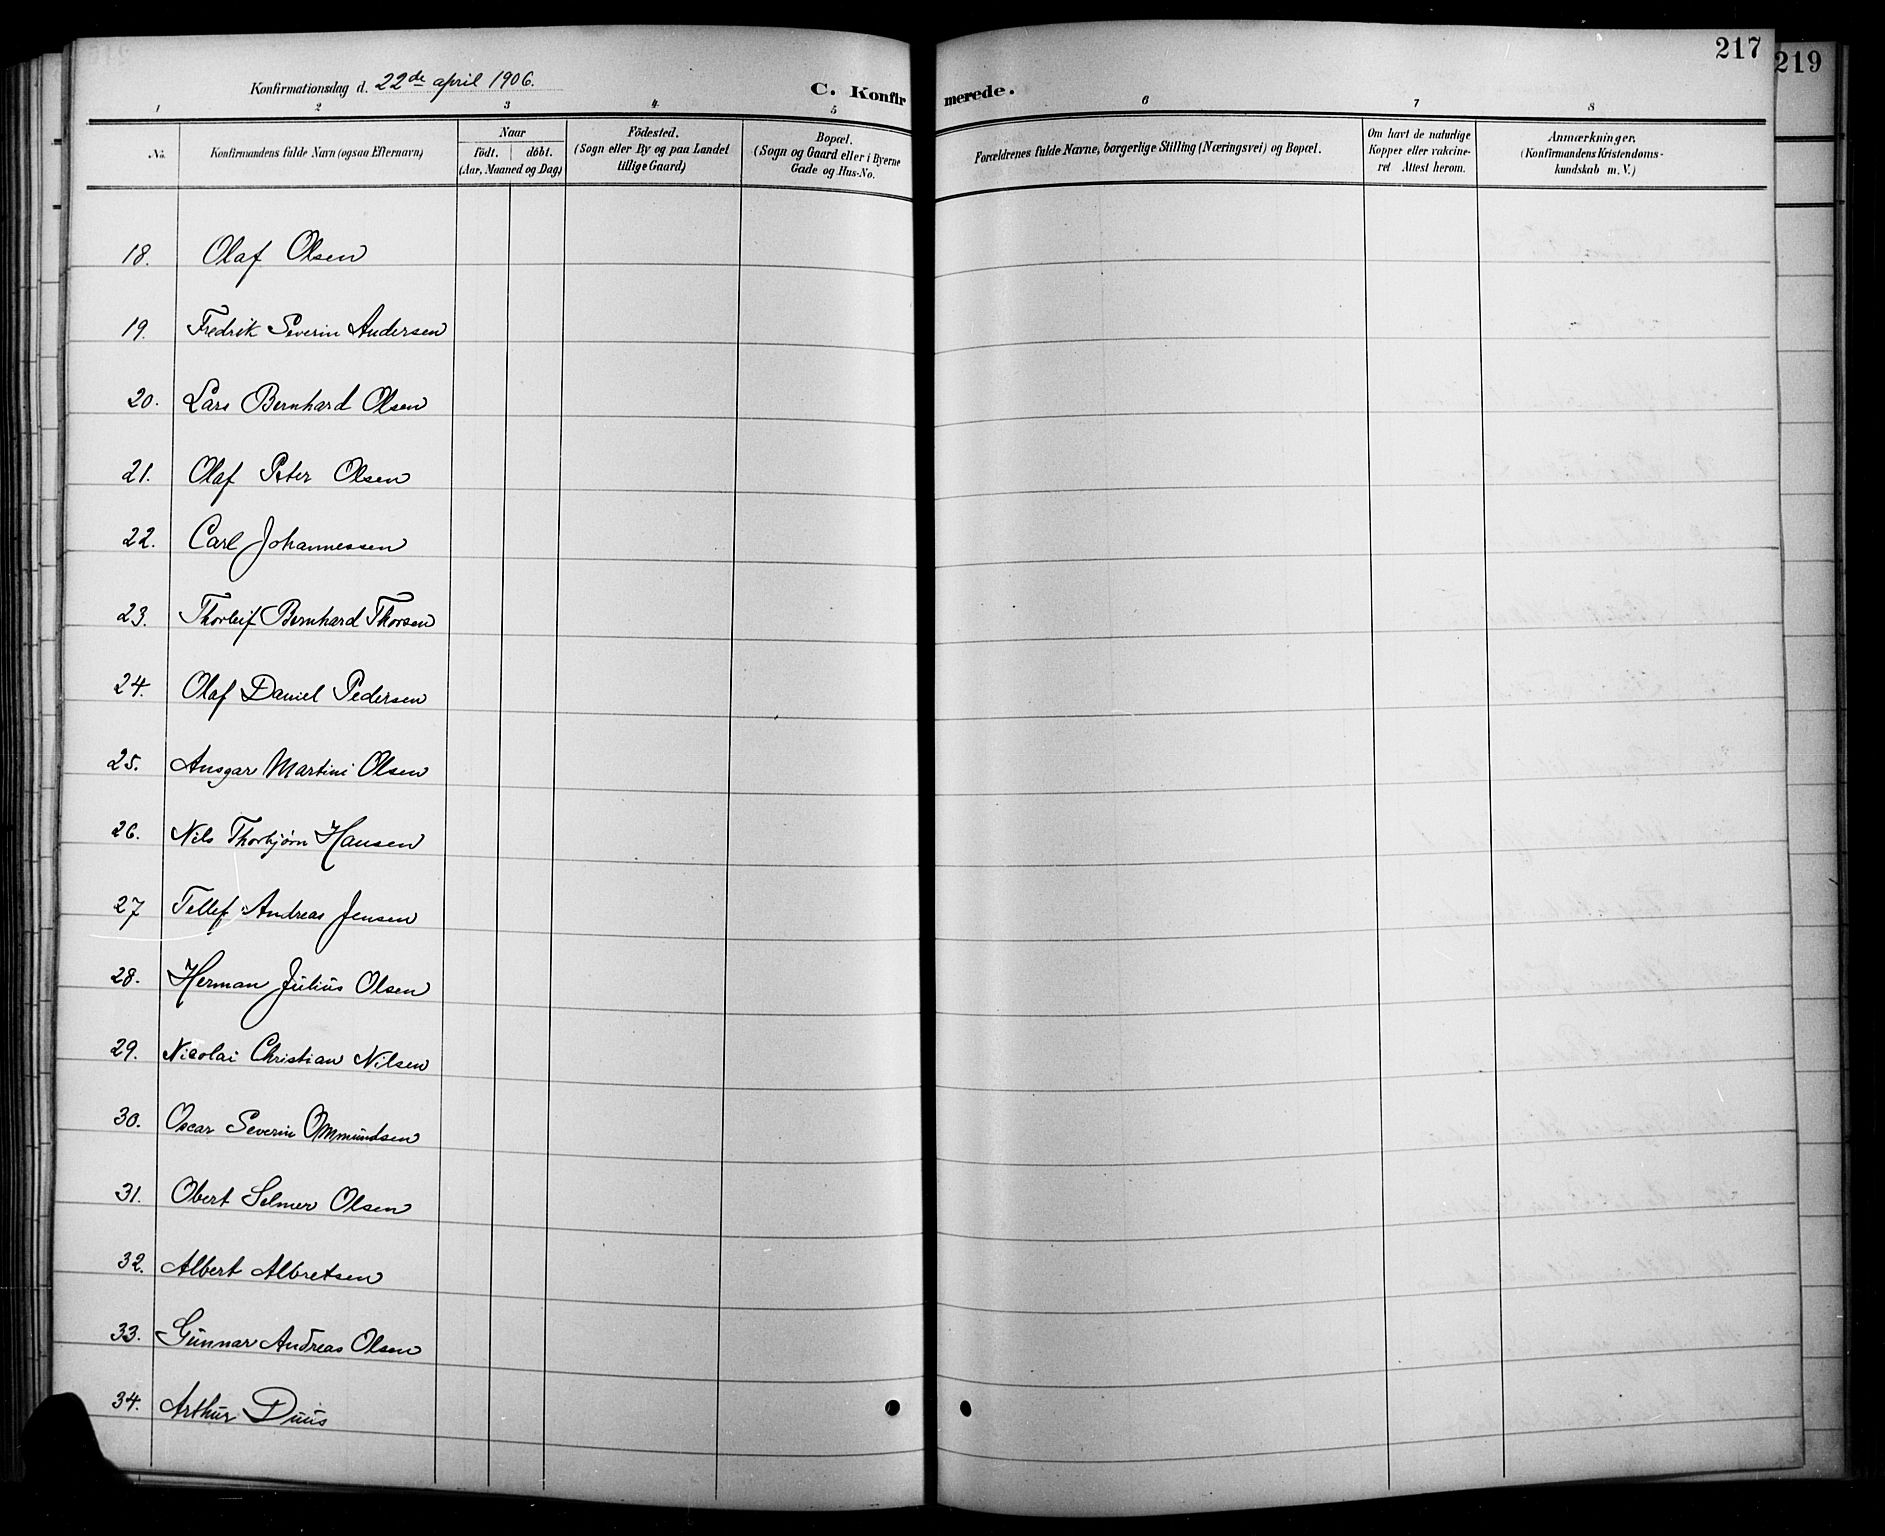 217
219
Konfirmationsdag d. 22de april 1906.
C. Konfirmerede.
1 2 3 4 5 6 7 8
No.
Konfirmandens fulde Navn (ogsaa Efternavn)
Naar
födt. döbt.
(Aar, Maaned og Dag)
Födested.
(Sogn eller By og paa Landet
tillige Gaard)
Bopæl.
(Sogn og Gaard eller i Byerne
Gade og Hus-No.
Forældrenes fulde Navne, borgerlige Stilling (Næringsvei) og Bopæl.
Om havt de naturlige
Kopper eller vakcine-
ret Attest herom.
Anmærkninger.
(Konfirmandens Kristendoms-
kundskab m. V.)
18. Olaf Olsen
19. Fredrik Severin Andersen
20. Lars Bernhard Olsen
21. Olaf Peter Olsen
22. Carl Johannessen
23. Thorleif Bernhard Thorsen
24. Olaf Daniel Pedersen
25. Ansgar Martini Olsen
26. Nils Thorbjørn Hansen
27 Tellef Andreas Jensen
28. Herman Julius Olsen
29. Nicolai Christian Nilsen
30. Oscar Severin Ommundsen
31. Obert Selmer Olsen
32. Albert Albretsen
33. Gunnar Andreas Olsen
34. Arthur Duus